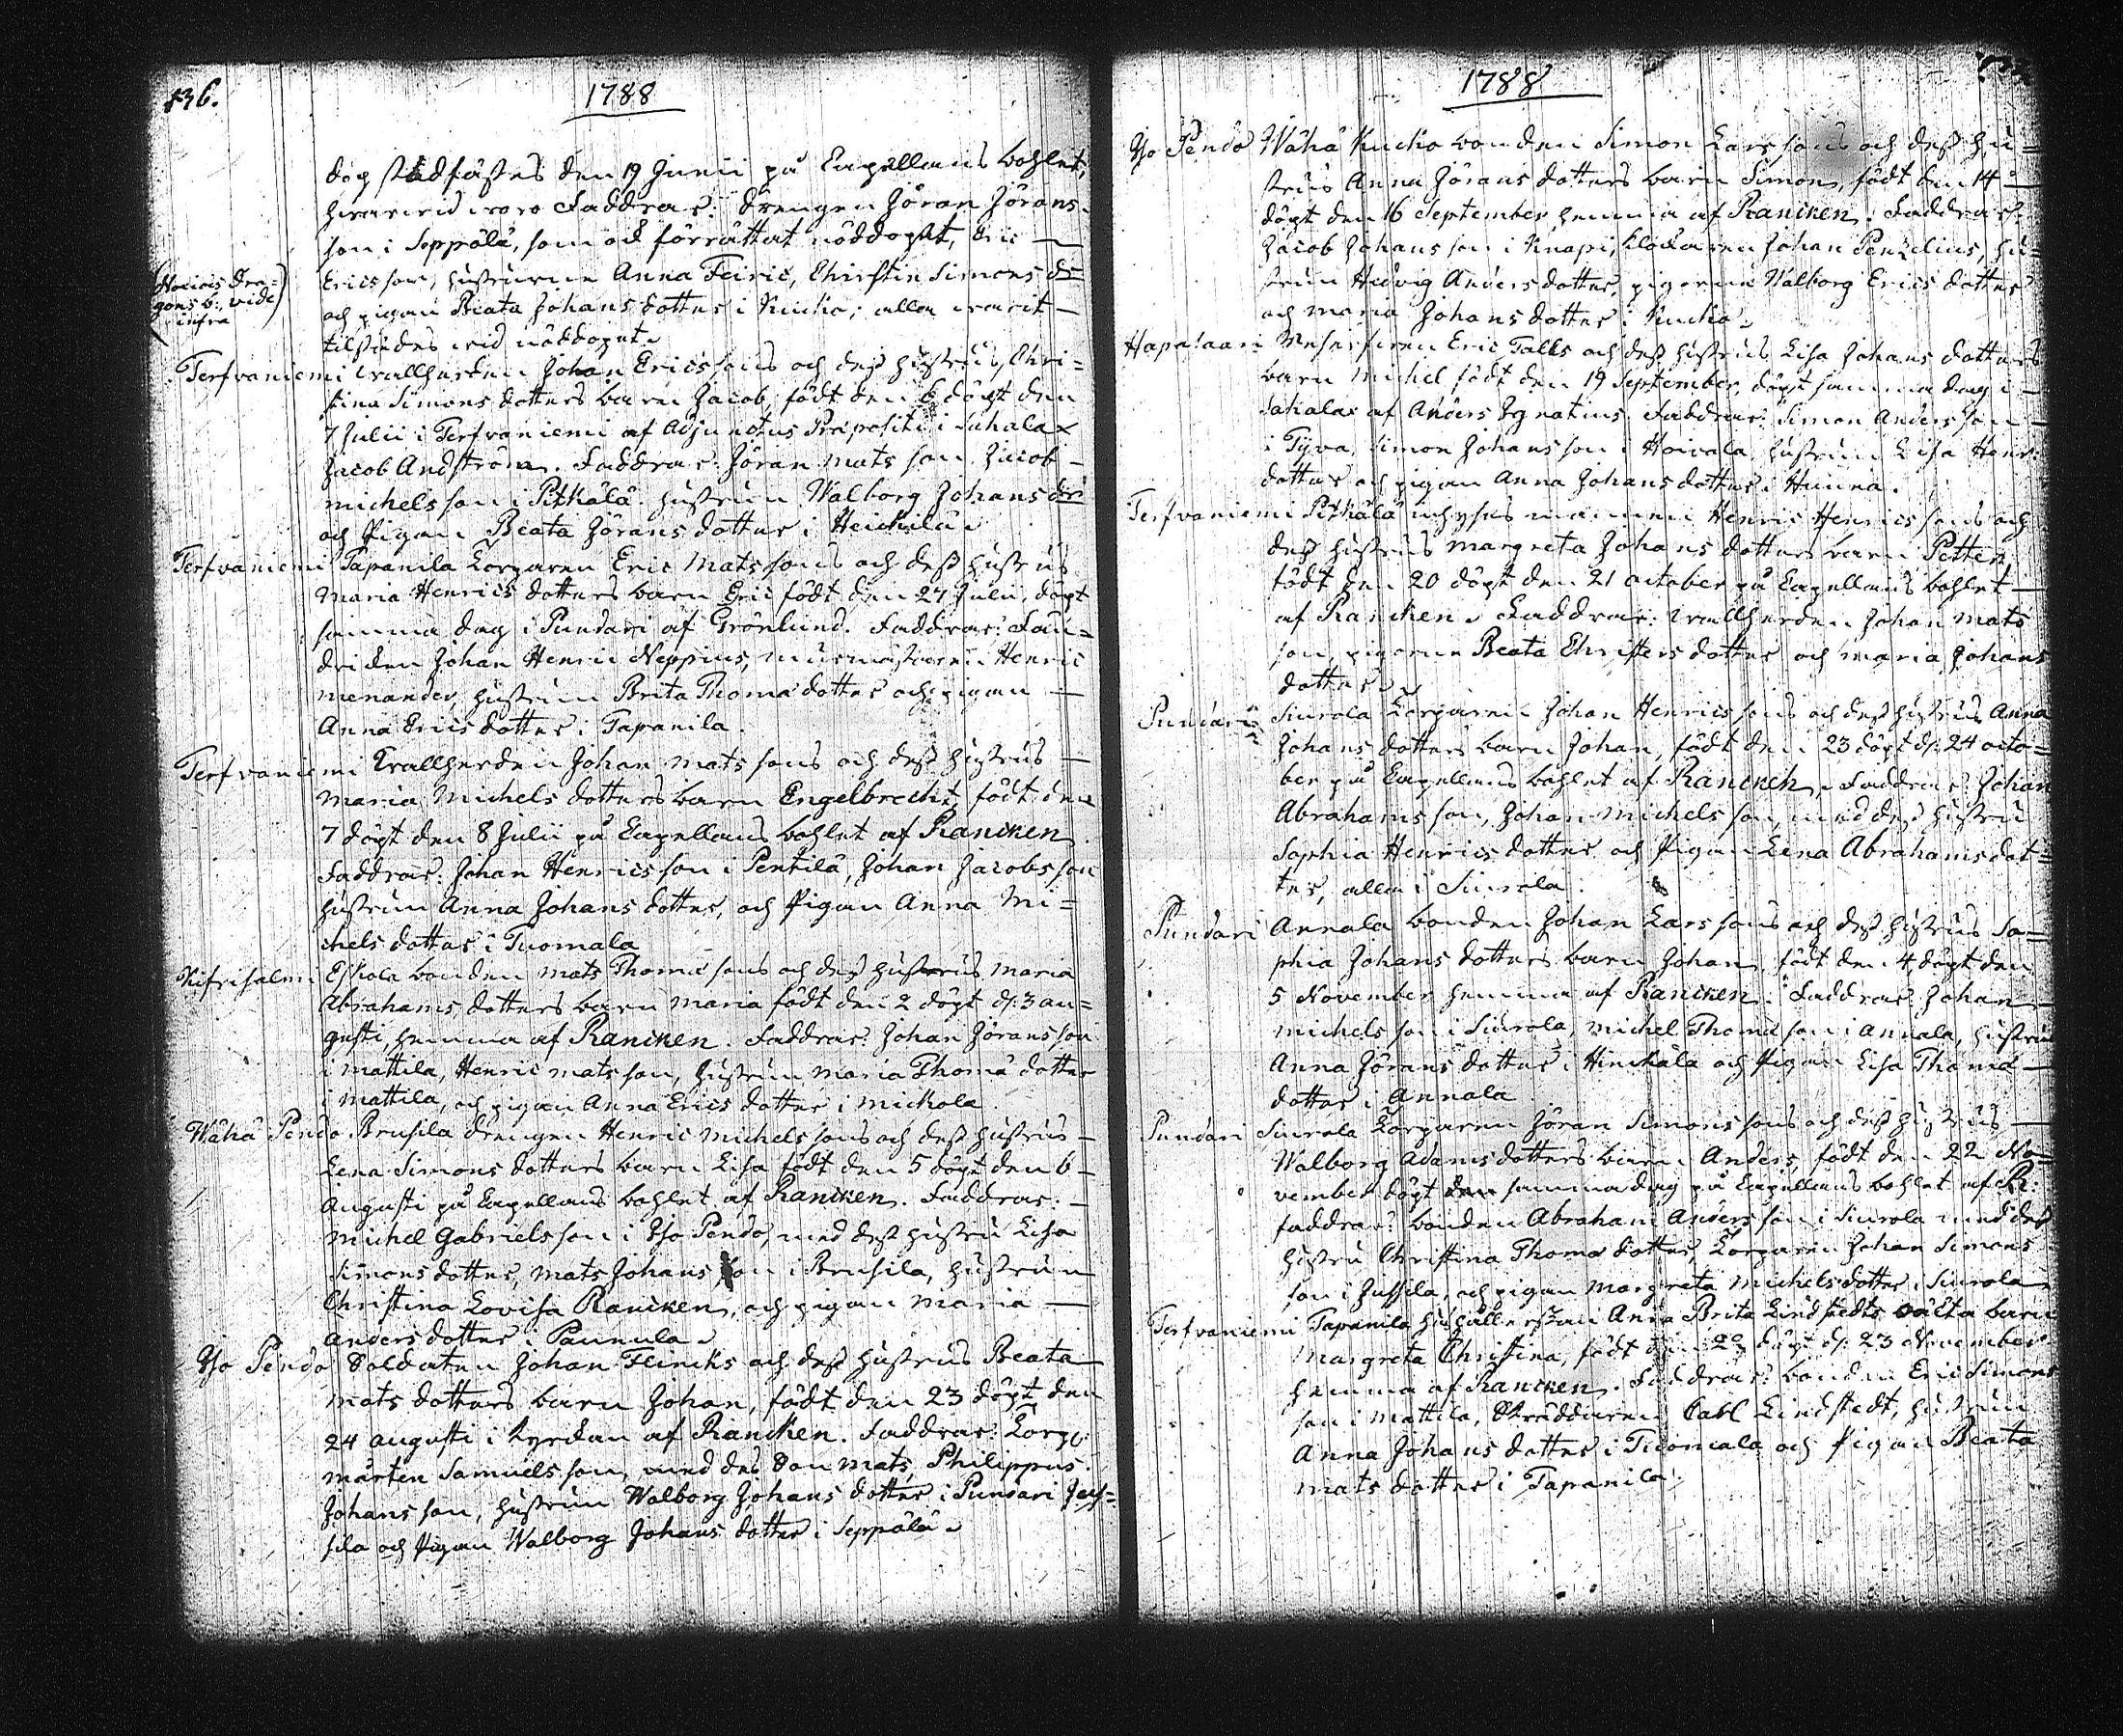 136.
1788
dop stadfästes den 19 Junii på Capellans bohlet,
hvarvid voro Faddrar: drengen Jöran Jörans-
son i Seppälä, som ock förrättat nöddopet, Eric —
Ericsson, hustrurne Anna Feiric, Christin Simons dr
och pigan Beata Johans dotter i Kucko; alla varit —
tilstädes vid nöddopet.
(Hoicois Dra=
gons b: vide
infra)
Terfvaniemi vallherden Johan Ericssons och dess hustrus Chri=
stina Simons dotters barn Jacob födt den 6 döpt den
7 Julii i Terfvaniemi af Adjunctus Præpositi i Sahalax
Jacob Andström. Faddrar: Jöran Mats son, Jacob —
Michelsson i Pitkälä hustrun Walborg Johans dr
och Pigan Beata Jörans dotter i Heickilä.
Terfvaniemi Tapanila Torparen Eric Matssons och dess hustrus
Maria Henrics dotters barn Eric födt den 27 Julii, döpt
samma dag i Pundari af Grönlund. Faddrar: Fän=
driken Johan Henric Neppius, murmästaren Henric
Menander, hustrun Brita Thomæ dotter och pigan —
Anna Erics dotter i Tapanila.
Terfvaniemi Wallherden Johan Mats sons och dess hustrus —
Maria Michels dotters barn Engelbrecht, födt den
7 döpt den 8 Julii på Capellans bohlet af Rancken.
Faddrar: Johan Henricsson i Pentilä, Johan Jacobsson
hustrun Anna Johans dotter, och Pigan Anna Mi=
chels dotter i Tuomala
Kifvisalmi Eskola bonden Mats Thomæ sons och dess hustrus Maria
Abrahams dotters barn Maria födt den 2 döpt d: 3 au=
gusti hemma af Rancken. Faddrar: Johan Jöransson
i Mattila, Henric Matsson, hustrun Maria Thomæ dotter
i Mattila, och pigan Anna Erics dotter i Mickola.
Wähä Pendo Brusila drengen Henric Michelssons och dess hustrus —
Lena Simons dotters barn Lisa födt den 5 döpt den 6 —
Augusti på Capellans bohlet af Rancken. Faddrar: —
Michel Gabrielsson i Yso Pendo, med dess hustru Lisa
Simons dotter, Mats Johansson i Brusila, hustrun
Christina Lovisa Rancken, och pigan Maria —
Anders dotter i Paunula.
Yso Pendo Soldaten Johan Flincks och dess hustrus Beata
Mats dotters barn Johan, födt den 23 döpt den
24 augusti i kyrckan af Rancken. Faddrar: Torp:
Mårten Samuelsson, med des Son Mats, Philippus
Johansson, hustrun Walborg Johans dotter i Pundari Jus=
sila och Pigan Walborg Johans dotter i Seppälä.
1788
Yso Pendo Wähä Kucko bonden Simon Larssons och dess hu=
strus Anna Jörans dotters barn Simon, födt den 14 —
döpt den 16 September hemma af Rancken. Faddrar:
Jacob Johansson i Knapi, klockaren Johan Penzelius, hu=
strun Hedvig Anders dotter, pigorne Walborg Erics dotter
och Maria Johans dotter i Kucko.
Hapasaari Eric Talls och dess hustrus Lisa Johans dotters
barn Michel födt den 19 September, döpt samma dag i —
Sahalax af Anders Ignatius. Faddrar: Simon Andersson —
i Tyva, Simon Johansson i Hoivala, hustrun Lisa Henr:
dotter och pigan Anna Johans dotter i Hunna.
Terfvaniemi Pitkälä inhyses mannen Henric Henricssons och
dess hustrus Margreta Johans dotters barn Petter,
födt den 20 döpt den 21 October på Capellans bohlet —
af Rancken. Faddrar: vallherden Johan Mats
son, pigorne Beata Christers dotter och Maria Johans
dotter.
Pundari Siurola Torparen Johan Henricssons och dess hustrus Anna
Johans dotters barn Johan, födt den 23 döpt d: 24 octo=
ber på Capellans bohlet af Rancken. Faddrar: Johan
Abrahamsson, Johan Michelsson, med des hustru
Sophia Henrics dotter och Pigan Lena Abrahams dot=
ter, alla i Siurola.
Pundari Annala bonden Johan Larssons och dess hustrus So=
phia Johans dotters barn Johan, födt den 4, döpt den
5 November hemma af Rancken. Faddrar: Johan —
Michelsson i Siurola, Michel Thomæ son i Annala, hustru
Anna Jörans dotter i Hinckälä och Pigan Lisa Thomæ —
dotter i Annala.
Pundari Siurola Torparen Jöran Simonssons och dess hustrus —
Walborg Adams dotters barn Anders, födt den 22 No=
vember döpt samma dag på Capellans bohlet af R:
faddrar: bonden Abraham Andersson i Siurola med des
hustru Christina Thomæ dotter, Torparen Johan Simons
son i Jussila, och pigan Margreta Michels dotter i Siurola
Terfvaniemi Tapanila hushållerskan Anna Brita Lindstedts oäcta barn
Margreta Christina, födt den 22 döpt d: 23 November
hemma af Rancken. Faddrar: bonden Eric Simons
son i Mattila, Skräddaren Carl Lindstedt, hustrun
Anna Johans dotter i Tuomala och Pigan Beata
Mats dotter i Tapanila.